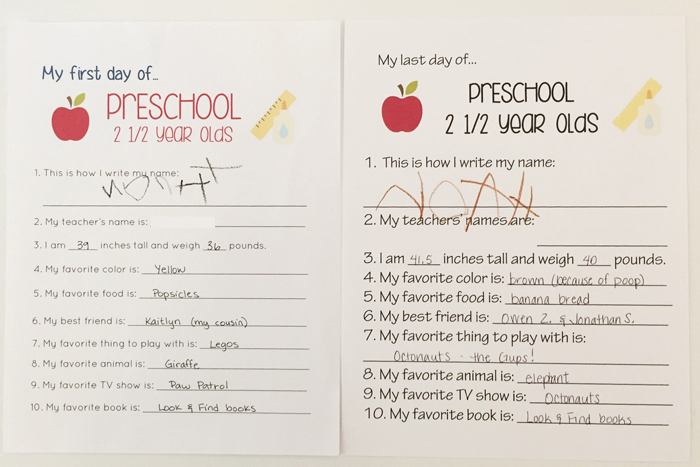 My first day of...
PRESCHOOL
2 1/2 YEAR OLDS
1. This is how I write my name:
NOAH
2. My teacher's name is:
3. I am 39 inches tall and weigh 36 pounds.
4. My favorite color is: Yellow
5. My favorite food is: Popsicles
6. My best friend is: Kaitlyn (my cousin)
7. My favorite thing to play with is: Legos
8. My favorite animal is: Giraffe
9. My favorite TV show is: Paw Patrol
10. My favorite book is: Look & Find books
My last day of...
PRESCHOOL
2 1/2 YEAR OLDS
1. This is how I write my name:
NOAH
2. My teachers' names are:
3. I am 41.5 inches tall and weigh 40 pounds.
4. My favorite color is: brown (because of poop)
5. My favorite food is: banana bread
6. My best friend is: Owen Z. & Jonathan S.
7. My favorite thing to play with is:
Octonauts - the Gups!
8. My favorite animal is: elephant
9. My favorite TV show is: Octonauts
10. My favorite book is: Look & Find books